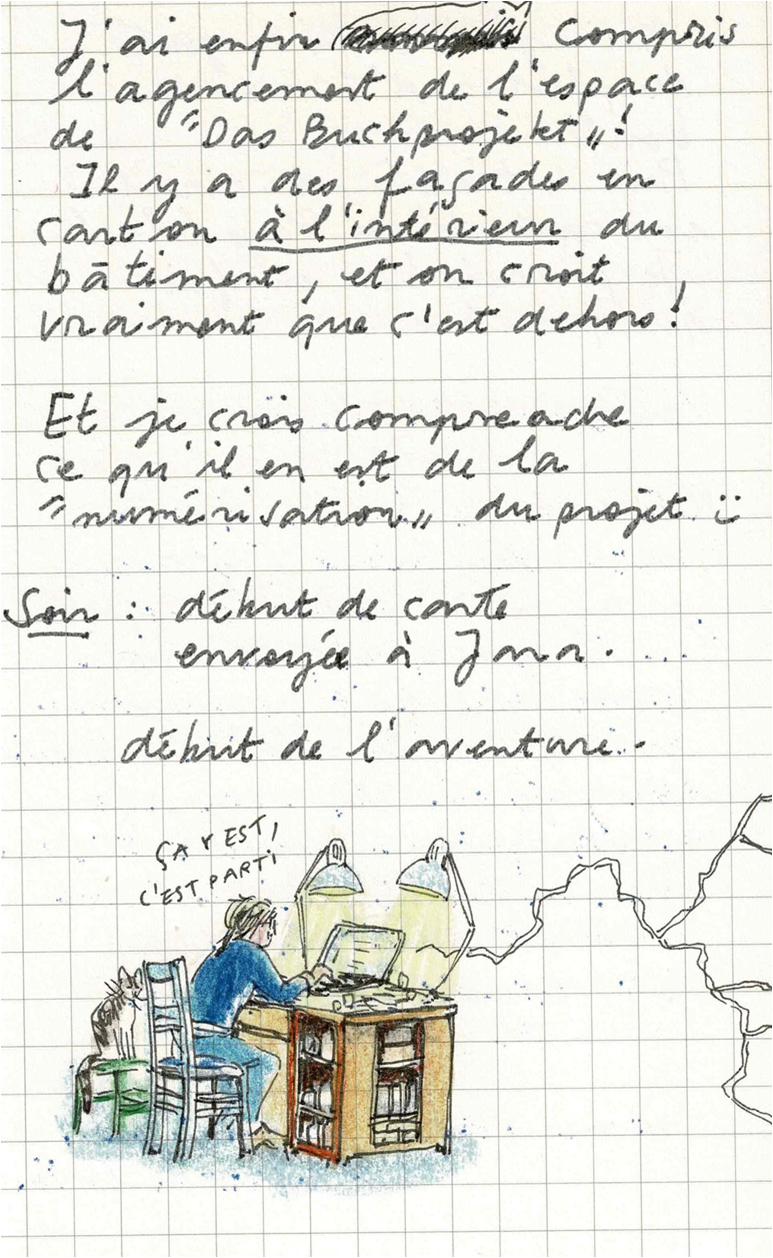 J'ai enfin compris
l'agencement de l'espace
de "Das Buchprojekt"!
Il y a des façades en
carton à l'intérieur du
bâtiment, et on croit
vraiment que c'est dehors!
Et je crois comprendre
ce qu'il en est de la
"numérisation" du projet :)
Soir : début de carte
envoyée à Jana.
début de l'aventure.
ÇA Y EST,
C'EST PARTI